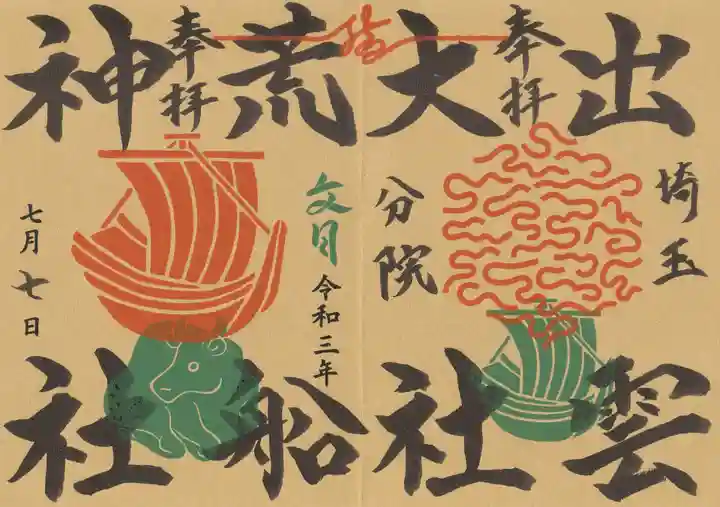 奉拝
出雲
大社
埼玉
分院
奉拝
荒船
神社
文月
令和三年
七月七日